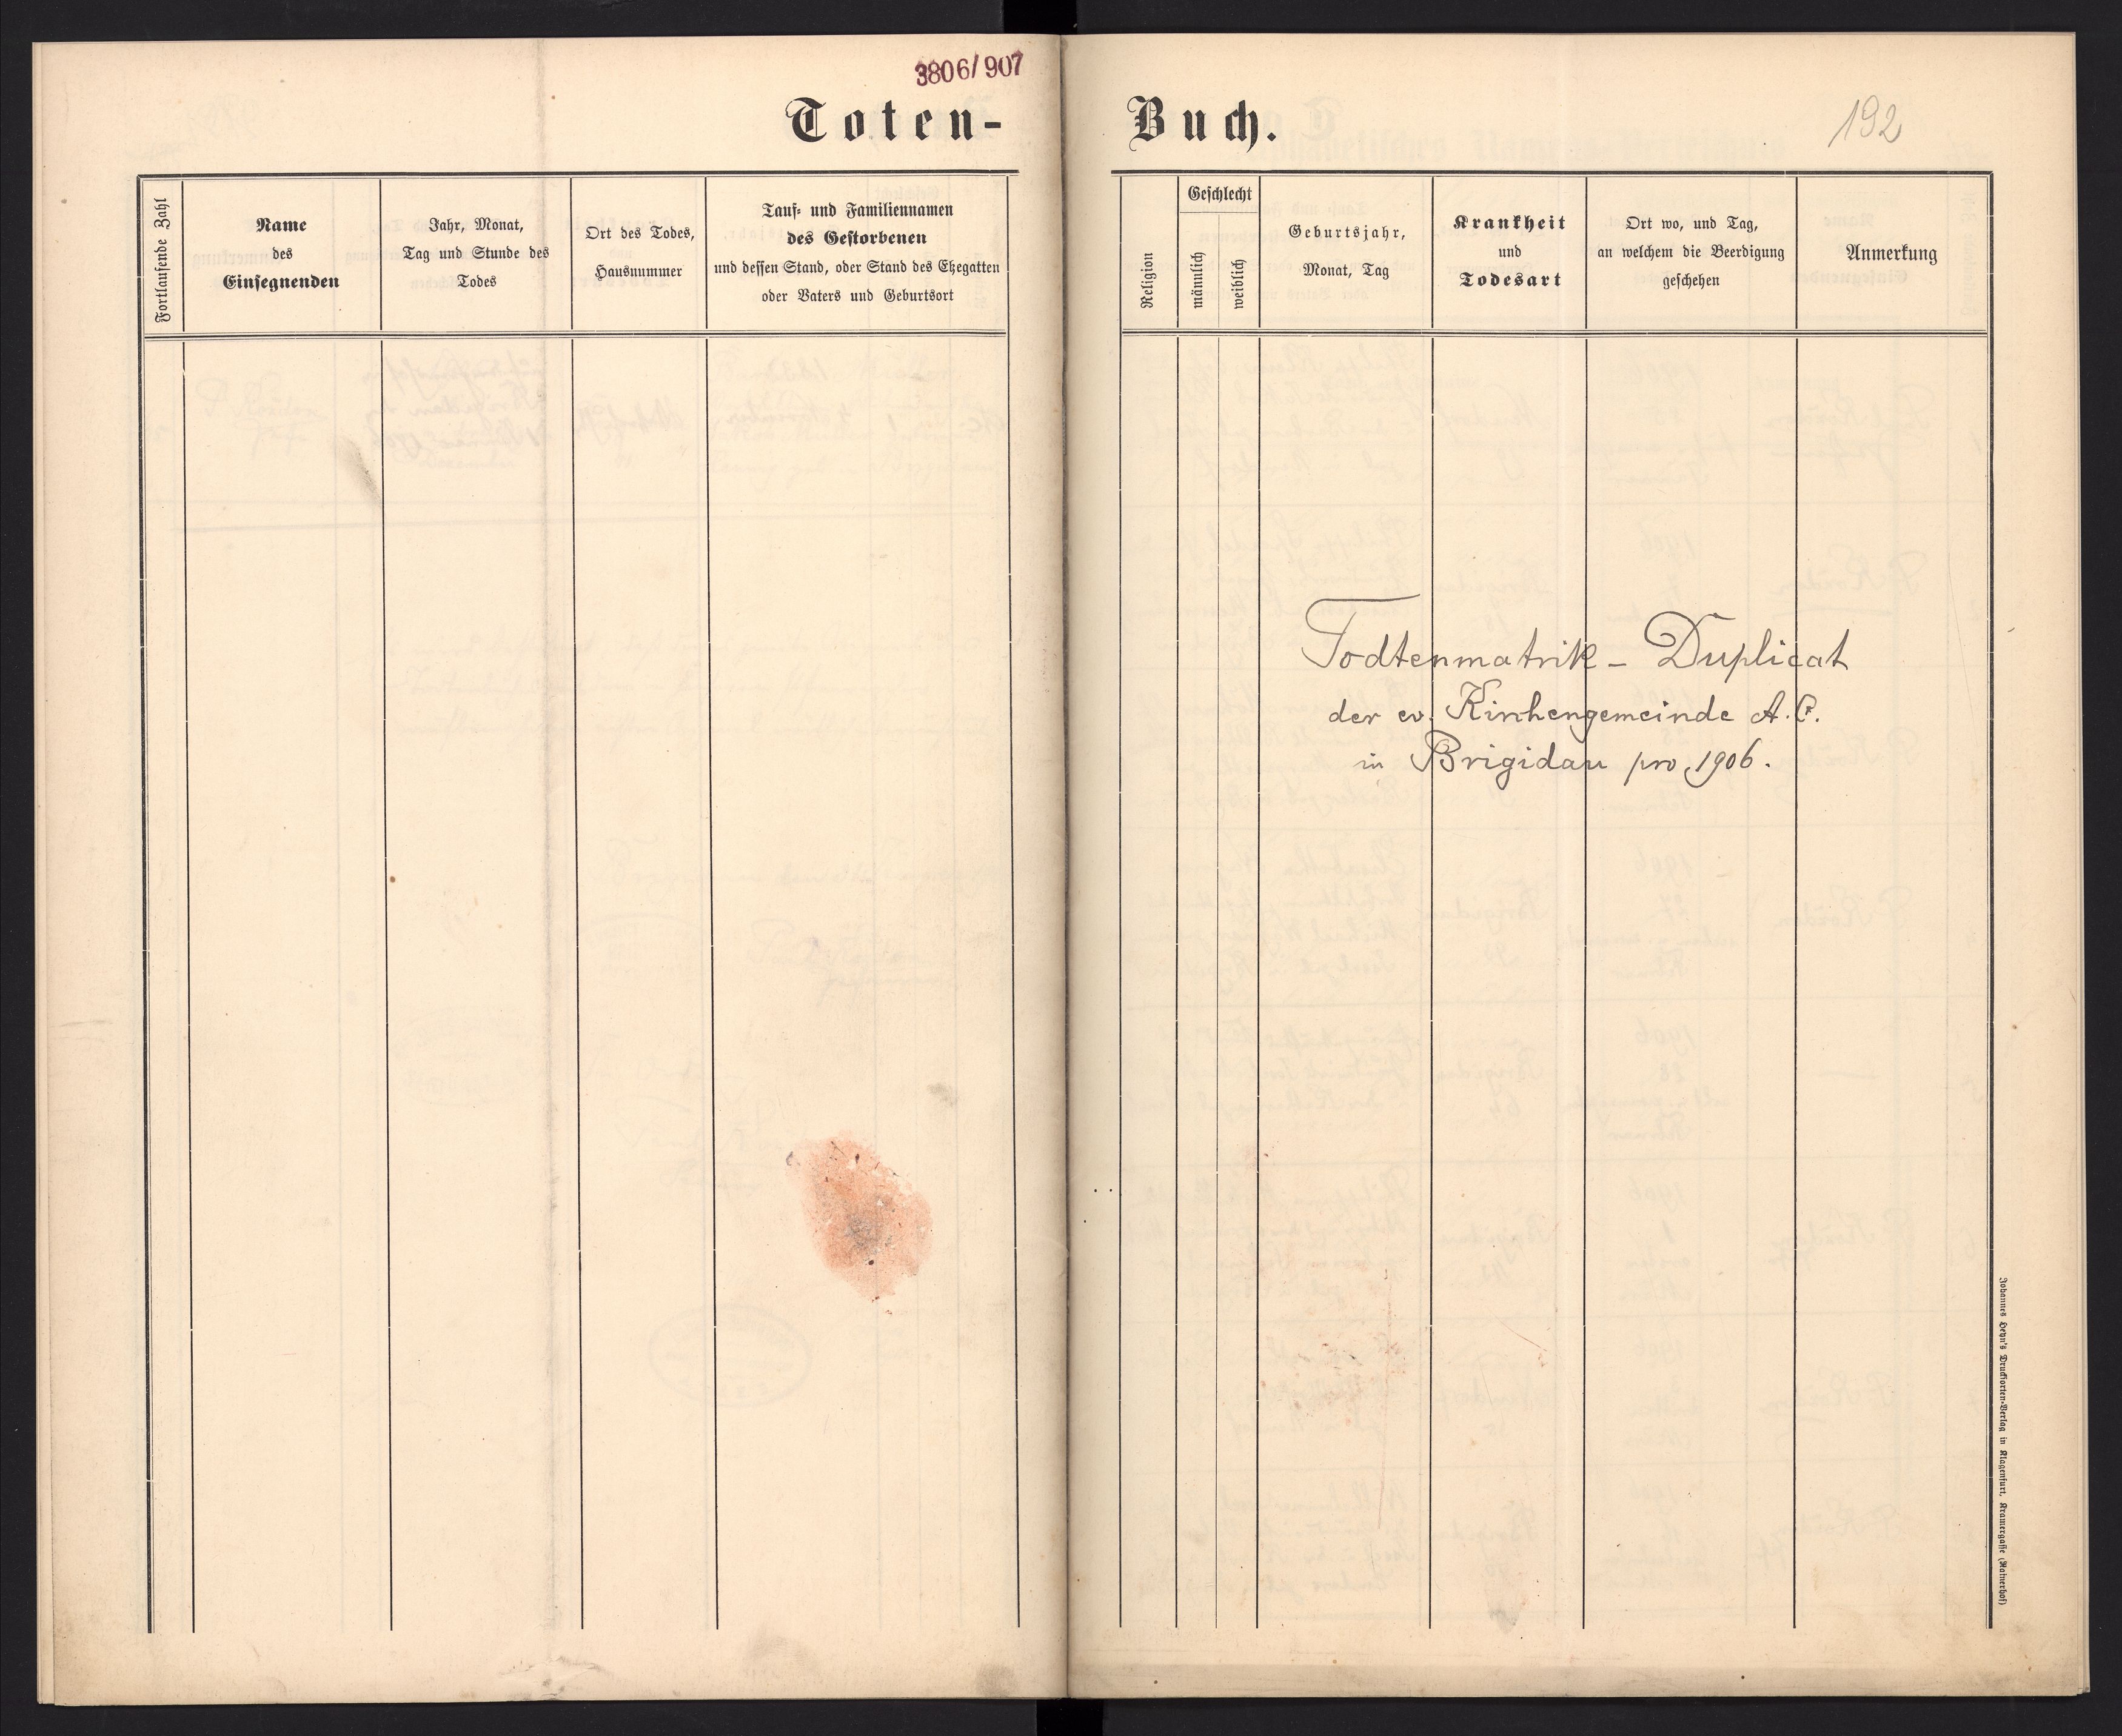 3806/907
Toten-
Fortlaufende Zahl
Name
des
Einsegnenden
Jahr, Monat,
Tag und Stunde des
Todes
Ort des Todes,
Hausnummer
Tauf- und Familiennamen
des Gestorbenen
und dessen Stand, oder Stand des Ehegatten
oder Vaters und Geburtsort
Buch.
192
Religion
Geschlecht
männlich
weiblich
Geburtsjahr,
Monat, Tag
Krankheit
und
Todesart
Ort wo, und Tag,
an welchem die Beerdigung
geschehen
Anmerkung
Todtenmatrik - Duplicat
der ev. Kirchengemeinde A. C.
in Brigidau pro 1906.
Johannes Heyn's Drucksorten-Verlag in Klagenfurt, Kramergasse (Rainerhof)